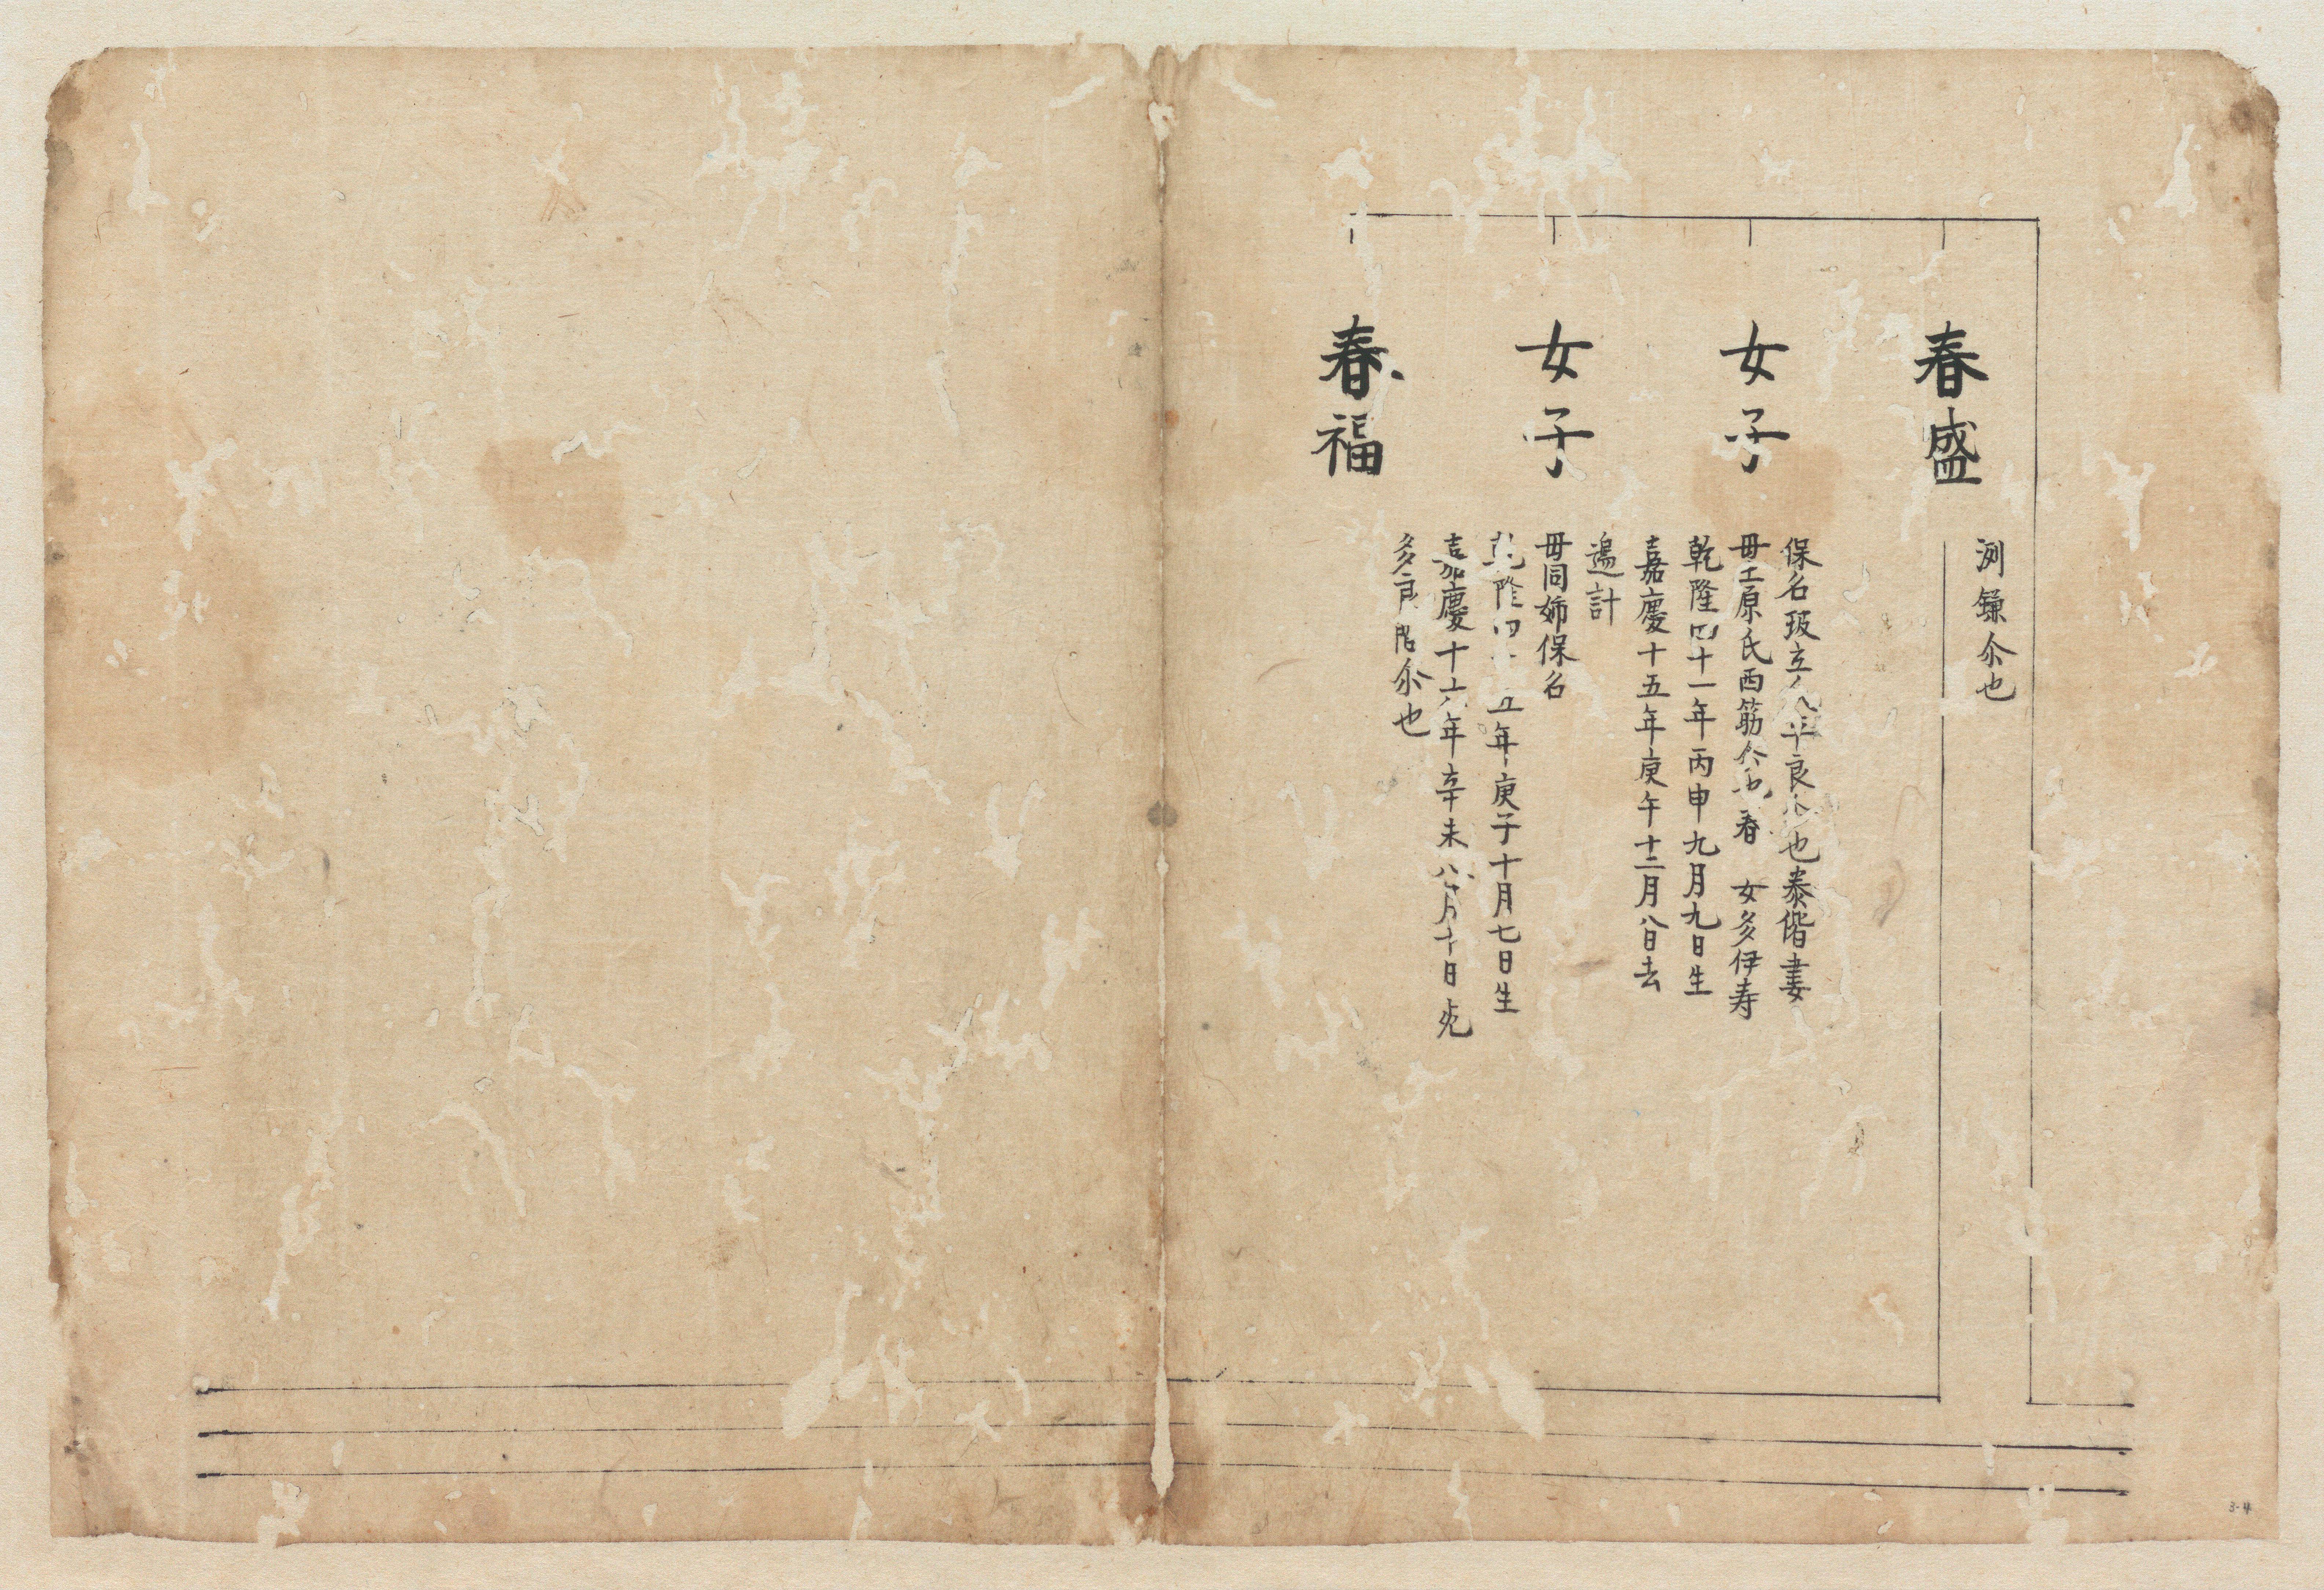 春盛
洌鎌尒也
女子
保名坂立 平良 也泰偕妻
毋上原氏西筋 春 女多伊寿
乾隆四十一年丙申九月九日生
嘉慶十五年庚午十二月八日去
過計
女子
毋同姉保名
乾隆四 五年庚子十月七日生
嘉慶十六年辛未八月十日死
多良 尒也
春福
3-4